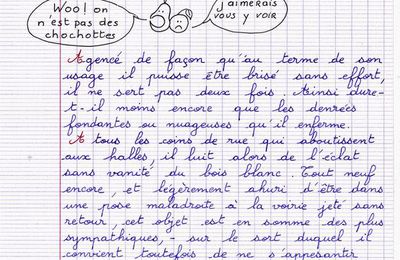 Woo! on
n'est pas des
chochottes
j'aimerais
vous y voir
Agencé de façon qu'au terme de son
usage il puisse être brisé sans effort,
il ne sert pas deux fois. Ainsi dure-
t-il moins encore que les denrées
fondantes ou nuageuses qu'il enferme.
A tous les coins de rue qui aboutissent
aux halles, il luit alors de l'éclat
sans vanité du bois blanc. Tout neuf
encore, et légèrement ahuri d'être dans
une pose maladroite à la voirie jeté sans
retour, cet objet est en somme des plus
sympathiques, - sur le sort duquel il
convient toutefois de ne s'appesantir